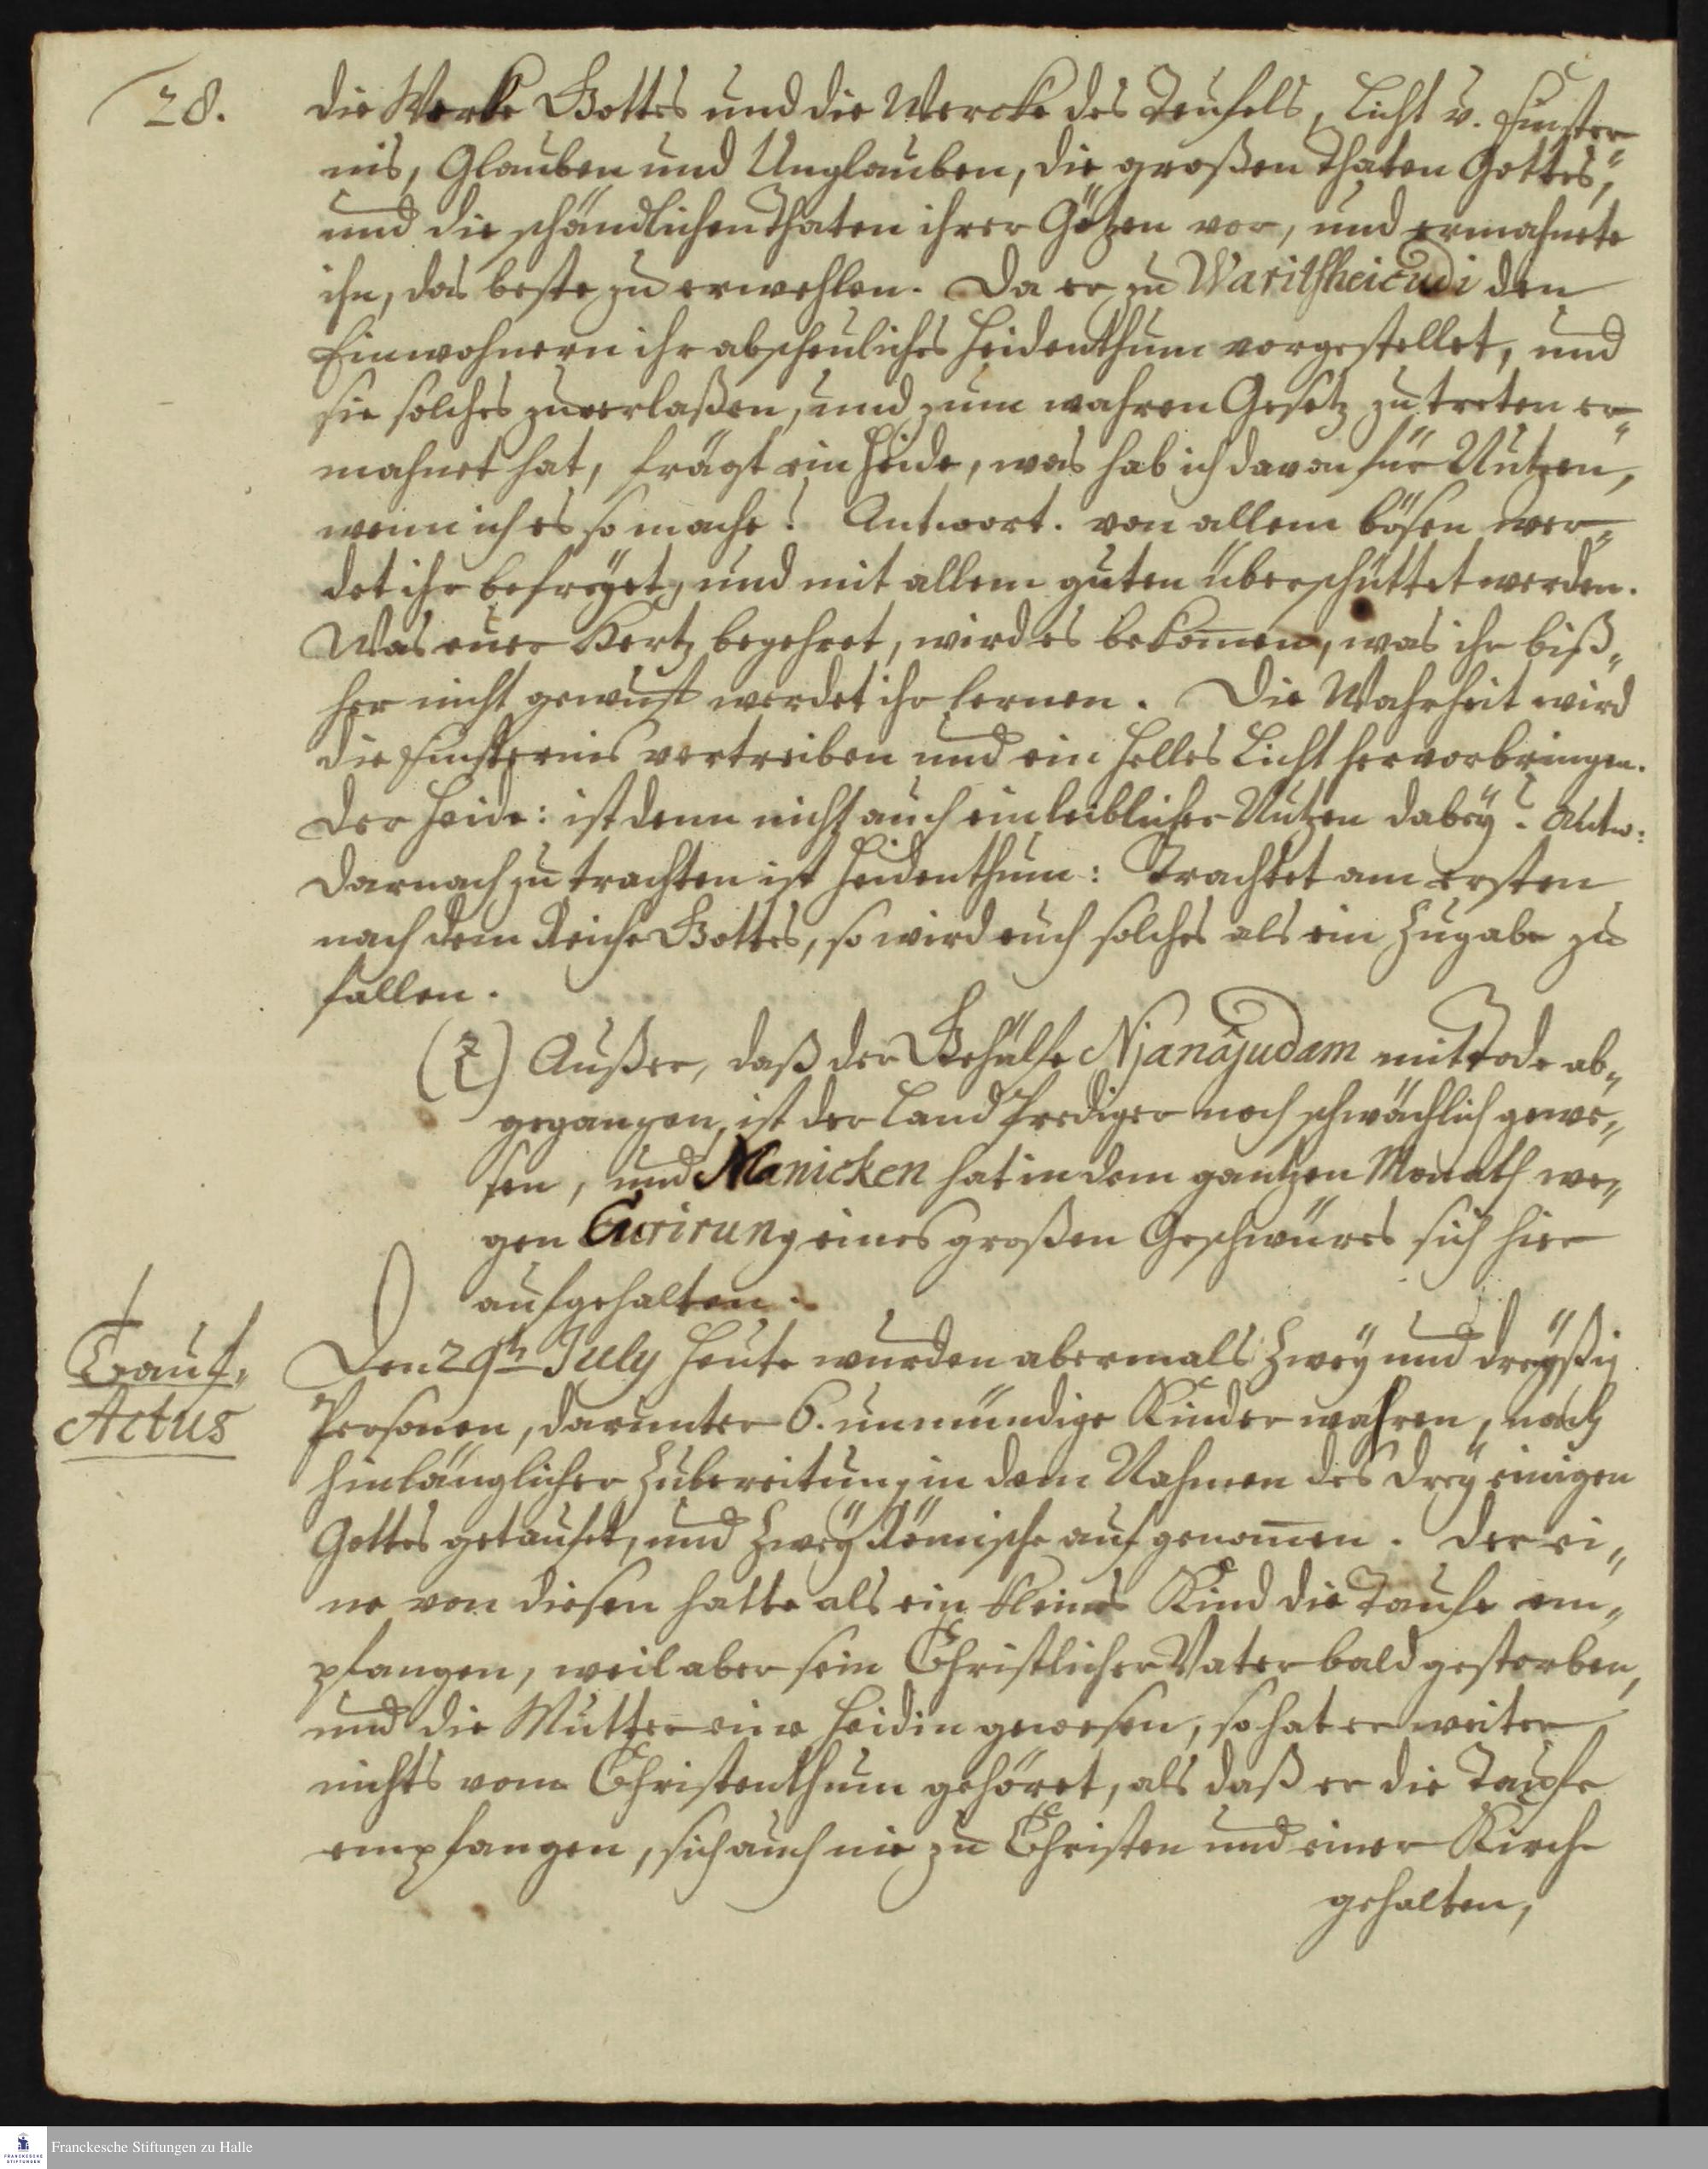 28.
die Werke Gottes und die Wercke des Teufels, Licht u. Finster
nis, Glauben und Unglauben, die großen Thaten Gottes,
und die schändlichen Thaten ihrer Götzen vor, und ermahnete
ihn, das beste zu erwehlen. Da er zu Waritscheicudi den
Einwohnern ihr abscheuliches Heidenthum vorgestellet, und
sie solches zuverlaßen, und zum wahren Gesetz zu treten er„
mahnet hat, frägt ein Heide, was hab ich davon für Nutzen,
wenn ich es so mache? Antwort. von allem bösen wer„
det ihr befreyet, und mit allem guten überschüttet werden.
Was euer Hertz begehret, wird es bekom̅en, was ihr biß„
her nicht gewust werdet ihr lernen. Die Wahrheit wird
die Finsternis vertreiben und ein helles Licht hervorbringen.
Der Heide: ist denn nicht auch ein leiblicher Nutzen dabey? Antw:
Darnach zu trachten ist Heidenthum: Trachtet am ersten
nach dem Reiche Gottes, so wird euch solches als ein Zugabe zu
fallen.
(2) Außer, daß der Gehülfe Njanajudam mit Tode ab„
gegangen, ist der Land Prediger noch schwächlich gewe„
sen, und Manicken hat in dem gantzen Monath we„
gen Curirung eines großen Geschwüres sich hier
aufgehalten.
Tauf„
Actus
Den 29th July Heute wurden abermals Zwey und dreyßig
Personen, darunter 6. unmündige Kinder wahren, nach
hinlänglicher Zubereitung in dem Nahmen des Dreyeinigen
Gottes getaufet, und Zwey Römische aufgenom̅en. Der ei„
ne von diesen hatte als ein kleines Kind die Taufe em„
pfangen, weil aber sein Christlicher Vater bald gestorben,
und die Mutter eine Heidin gewesen, so hat er weiter
nichts vom Christenthum gehöret, als daß er die Taufe
empfangen, sich auch nie zu Christen und einer Kirche
gehalten,
FRANCKESCHE STIFTUNGEN
Franckesche Stiftungen zu Halle